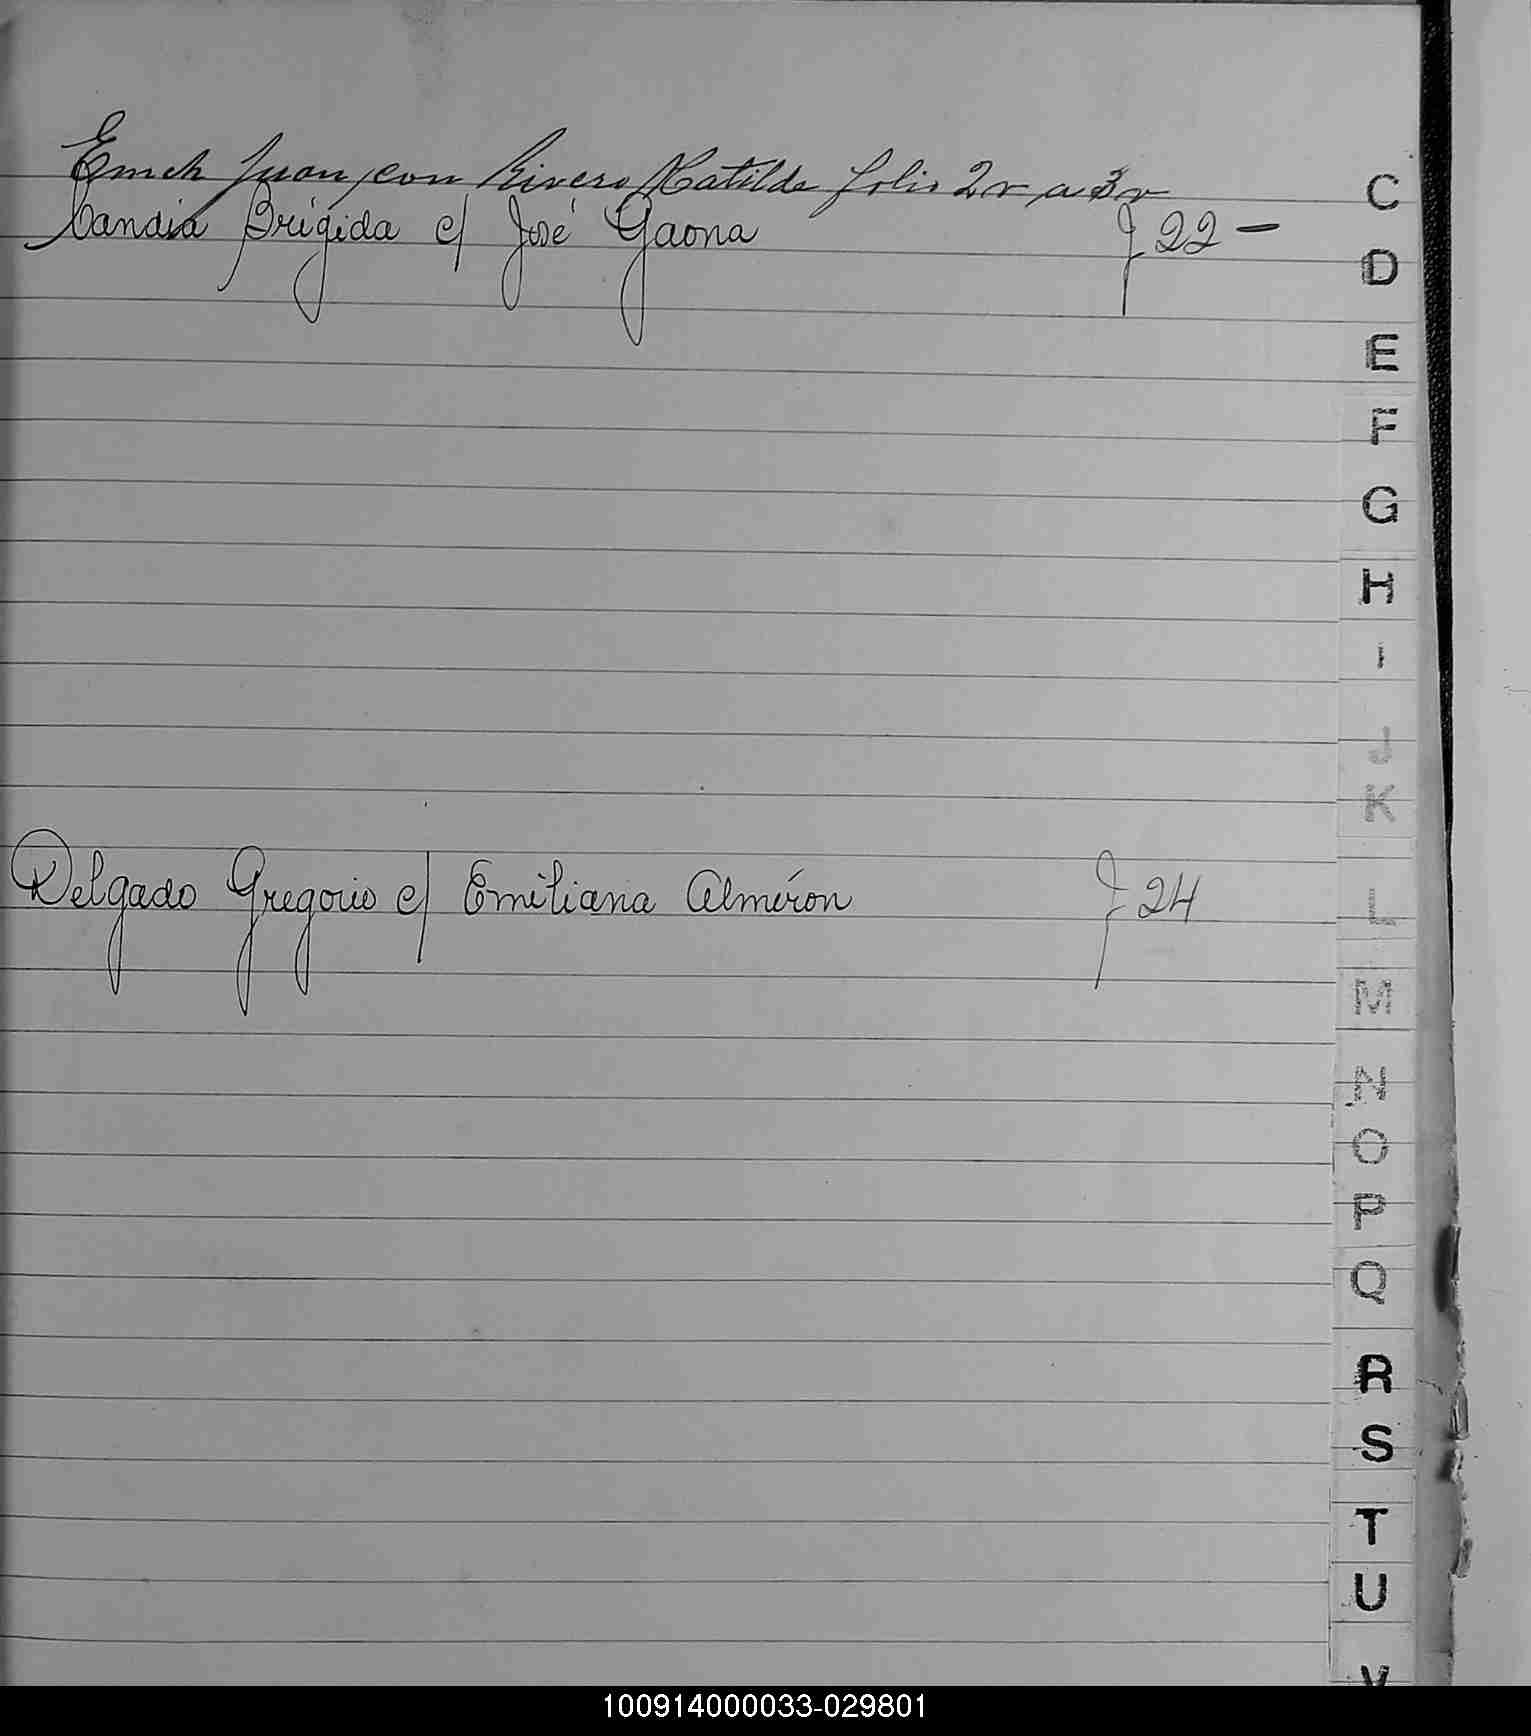 Emch Juan, con Rivero Matilde folio 2v a 3v
Candia Brígida c/ José Gaona f 22 -
Delgado Gregorio c/ Emiliana Almirón f 24
C
D
E
F
G
H
I
J
K
L
M
N
O
P
Q
R
S
T
U
V
100914000033-029801